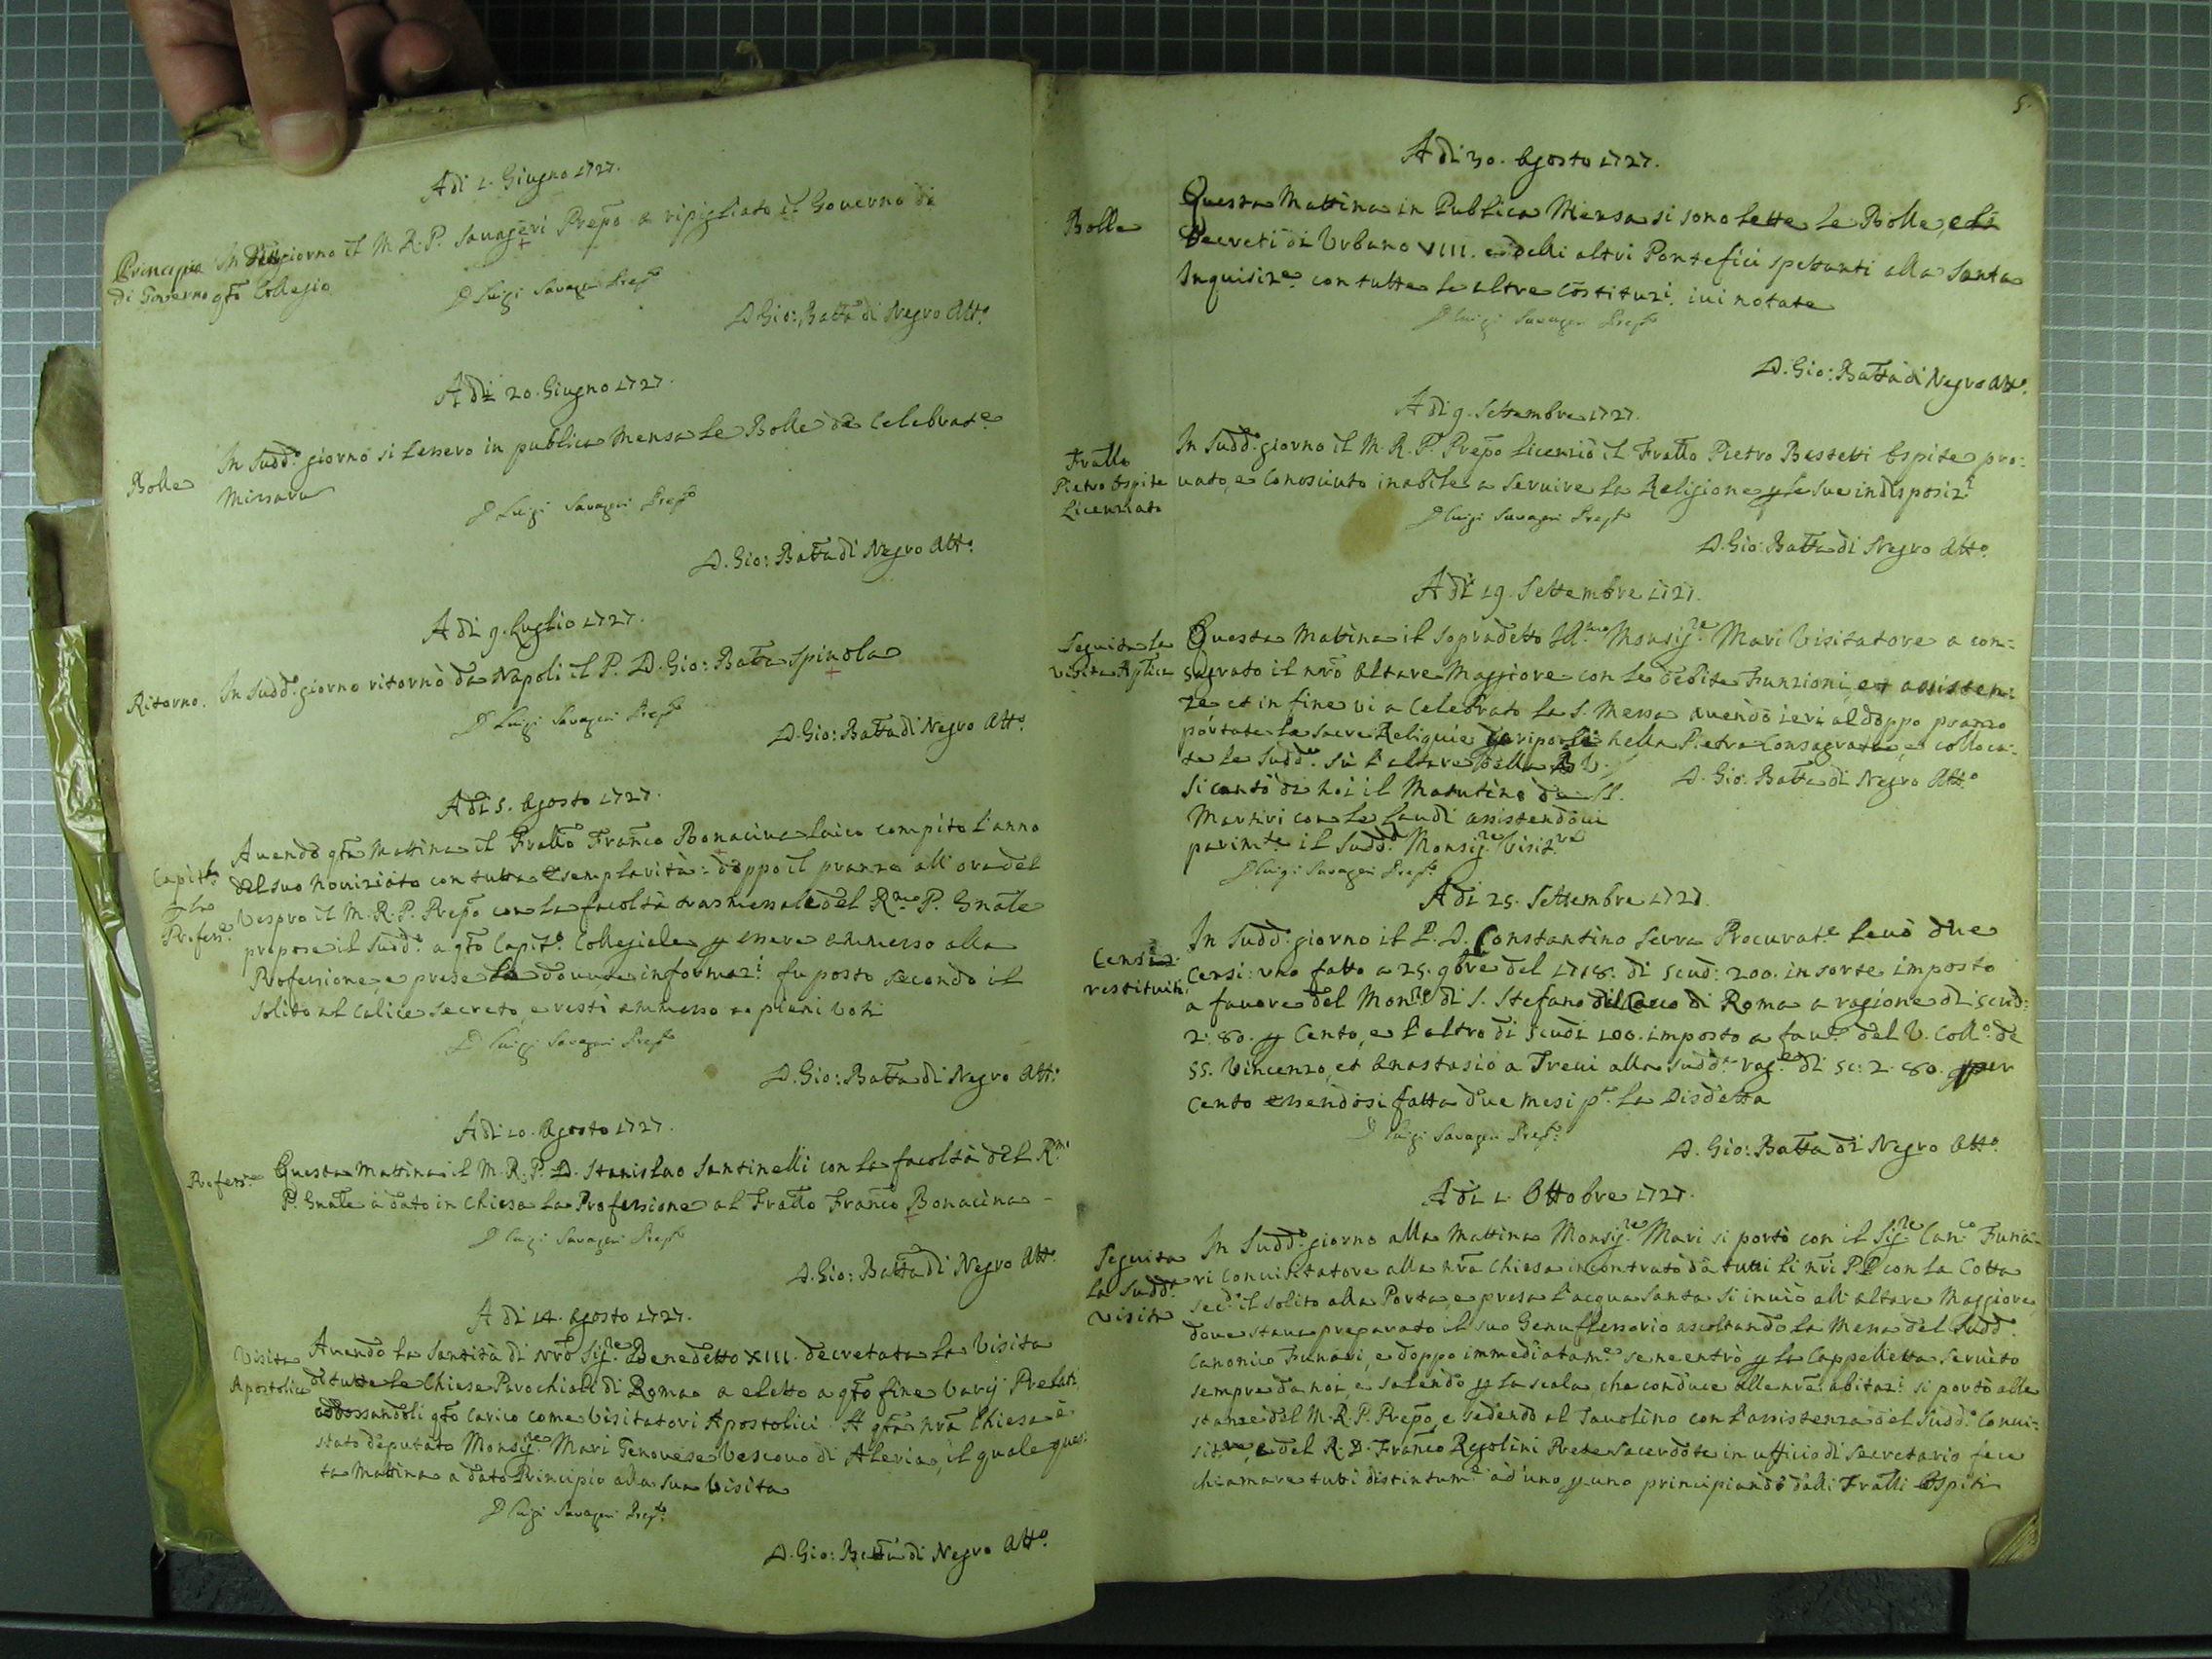 A di 1. Giugno 1727.
Principio In detto giorno il M. R. P. Savageri Prepo a ripigliato il Governo di
di Governo qto Collegio
D Luigi Savageri Prepto
D. Gio: Batta di Negro Atto.
A di 20. Giugno 1727.
In Sudd.o giorno si lessero in publica Mensa le Bolle de Celebrat.e
Bolle Missaru
D Luigi Savageri Prepto
D. Gio: Batta di Negro Atto.
A di 9. Luglio 1727.
Ritorno. In Sudd.o giorno ritornò da Napoli il P. D. Gio: Batta Spinola
D Luigi Savageri Prepto
D. Gio: Batta di Negro Atto.
A di 5. Agosto 1727.
Avendo qta Mattina il Fratto Franco Bonacina laico compito l'anno
Capit.o del suo Noviziato con tutta esemplarità: doppo il pranzo all' ora del
p la Vespro il M. R. P. Prepo con la facoltà trasmessale del R.mo P. Gnale
Profess.e propose il Sudd.o a qto Capit.o Collegiale p essere ammesso alla
Professione, e prese le dovute informaz.i fu posto secondo il
solito al Calice secreto, e restò ammesso a pieni voti
D Luigi Savageri Prepto
D. Gio: Batta di Negro Atto.
A di 10. Agosto 1727.
Profess.e Questa Mattina il M. R. P. D. Stanislao Santinelli con la facoltà del R.mo
P. Gnale à dato in Chiesa la Professione al Fratto Franco Bonacina -
D Luigi Savageri Prepto
D. Gio: Batta di Negro Atto.
A di 14. Agosto 1727.
Visita Avendo la Santità di Nro Sig.re Benedetto XIII. decretata la Visita
Apostolica di tutte le Chiese Parochiali di Roma a eletto a qto fine varij Prelati
addossandoli qto carico come Visitatori Apostolici. A qta nra Chiesa è
stato deputato Monsig.re Mari Genovese Vescovo di Aleria, il quale ques:
ta Mattina a dato Principio alla sua Visita
D Luigi Savageri Prepto
D. Gio: Batta di Negro Atto.
5.
A di 30. Agosto 1727.
Bolle Questa Mattina in Publica Mensa si sono lette le Bolle, e li
Decreti di Urbano VIII. e delli altri Pontefici spettanti alla Santa
Inquisiz.e con tutte le altre Costituzi. ivi notate
D Luigi Savageri Prepto
D. Gio: Batta di Negro Atto.
A di 9. Settembre 1727.
Fratto In Sudd.o giorno il M. R. P. Prepo licenziò il Fratto Pietro Bessetti Ospite pro:
Pietro Ospite vato, e Conosciuto inabile a Servire la Religione p le sue indisposiz.i
Licenziato
D Luigi Savageri Prepto
D. Gio: Batta di Negro Atto.
A di 19. Settembre 1727.
Seguita la Questa Mattina il sopradetto Ill.mo Monsig.re Mari Visitatore a con:
Visita Aplica sagrato il nro Altare Maggiore con le debite Funzioni, et assisten:
ze et in fine vi a Celebrato la S. Messa avendo ieri al doppo pranzo
portate le sacre Reliquie da riporsi nella Pietra Consagrata, e colloca:
te le Sudd.e sù l'altare della B. V.
Si cantò da noi il Matutino de SS. D. Gio: Batta di Negro Atto.
Martiri con le Laudi assistendovi
parim.te il Sudd.o Monsig.re Visit.re
D Luigi Savageri Prepto
A di 25. Settembre 1727.
Censi In Sudd.o giorno il P. D. Constantino Serra Procurat.e levò due
restituiti Censi: uno fatto a 25. 9bre del 1718. di scud: 200. in sorte imposto
a favore del Mon.rio di S. Stefano del Cacco di Roma a ragione di scud:
2: 80. p Cento, e l'altro di scudi 100. imposto a fav.e del V. Coll.o de
SS. Vincenzo, et Anastasio a Trevi alla sudd.a rag.e di sc: 2. 80. per
Cento essendosi fatta due mesi p.a la Disdetta
D Luigi Savageri Prepto
D. Gio: Batta di Negro Atto.
A di 1. Ottobre 1727.
Seguita In Sudd.o giorno alla Mattina Monsig.re Mari si portò con il Sig.re Can.co Funa:
la Sudd.a ri Convisitatore alla nra Chiesa incontrato da tutti li nri PP con la Cotta
Visita sec.o il solito alla Porta, e presa l'acqua Santa si inviò all' altare Maggiore,
dove stava preparato il suo Genuflessorio ascoltando la Messa del Sudd.
Canonico Funari, e doppo immediatam.e se ne entrò p la Cappelletta servito
sempre da noi, e salendo p la scala, che conduce alle nre abitaz.i si portò alle
stanze del M. R. P. Prepo, e sedendo al Tavolino con l'assistenza del Sudd.o Convi:
sit.re e del R. D. Franco Regolini Prete Sacerdote in ufficio di Secretario fece
chiamare tutti distintam.e ad uno p uno principiando dalli Fratti Ospiti